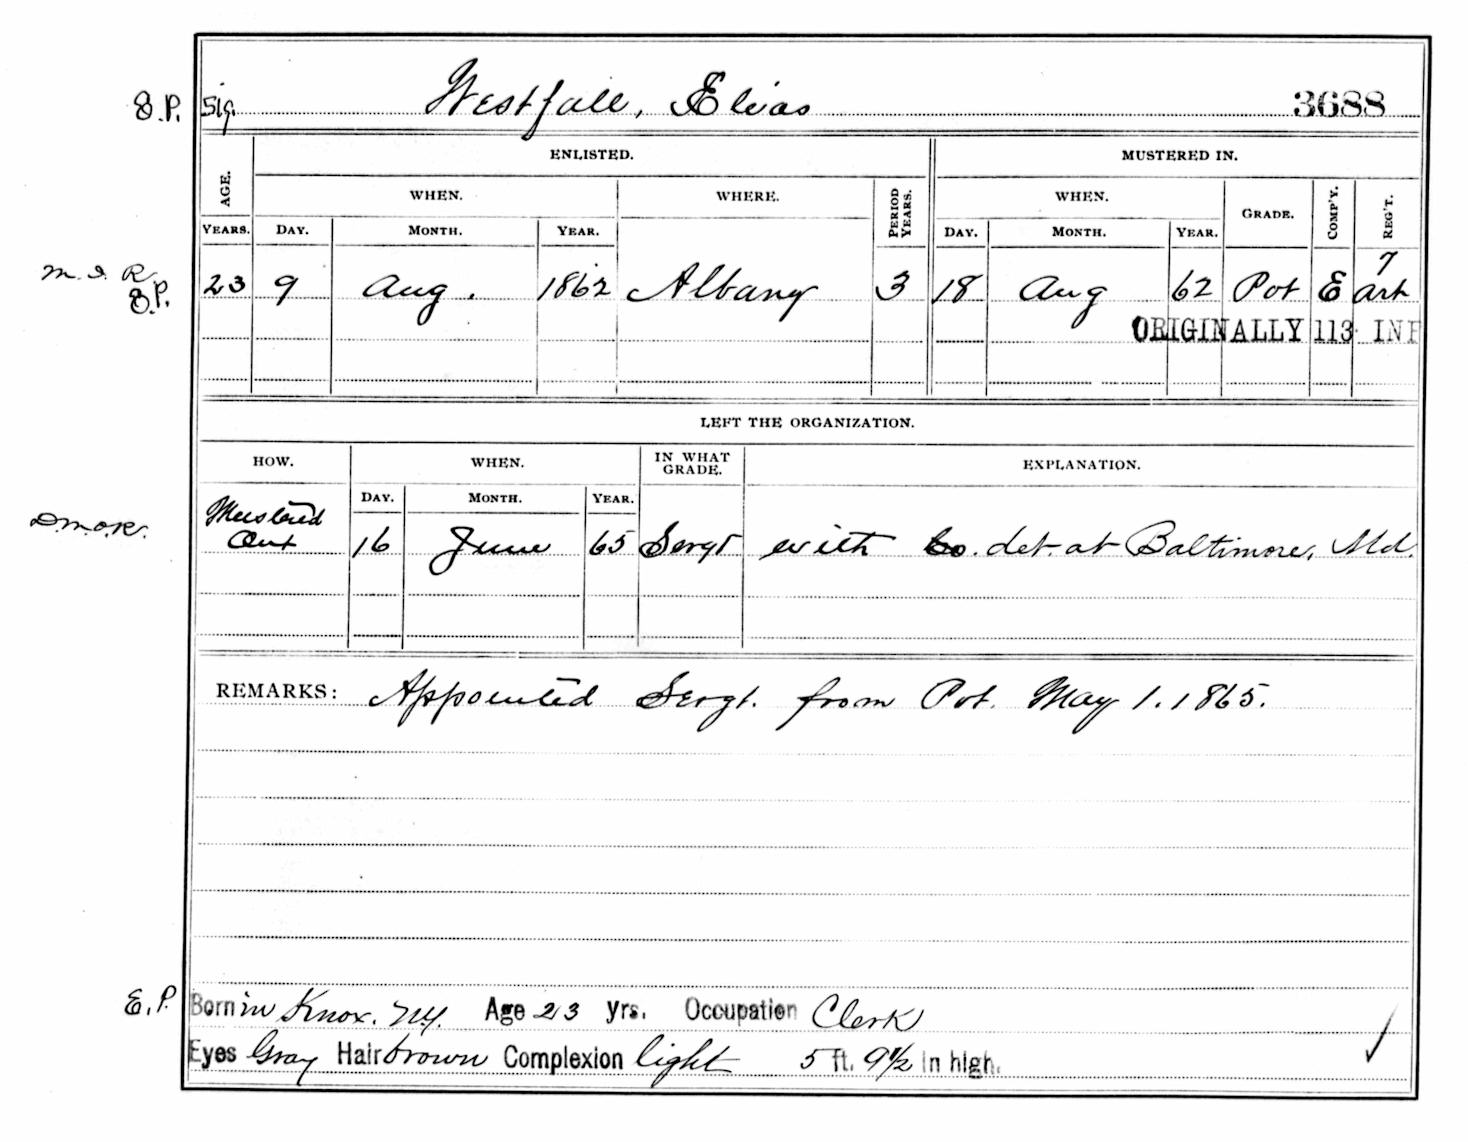 E.P. Sig. Westfall, Elias 3688
ENLISTED. MUSTERED IN.
AGE. WHEN. WHERE. PERIOD YEARS. WHEN. GRADE. COMP'Y. REG'T.
YEARS. DAY. MONTH. YEAR. DAY. MONTH. YEAR.
M. I. R. 7
E.P. 23 9 Aug. 1862 Albany 3 18 Aug 62 Pvt E Art
ORIGINALLY 113 INF
LEFT THE ORGANIZATION.
HOW. WHEN. IN WHAT GRADE. EXPLANATION.
DAY. MONTH. YEAR.
Mustered
D.M.O.R. Out 16 June 65 Sergt with Co. det. at Baltimore, Md.
REMARKS: Appointed Sergt. from Pvt. May 1. 1865.
E.P. Born in Knox. N.Y. Age 23 yrs. Occupation Clerk
Eyes Gray Hair brown Complexion light 5 ft. 9 1/2 in high.